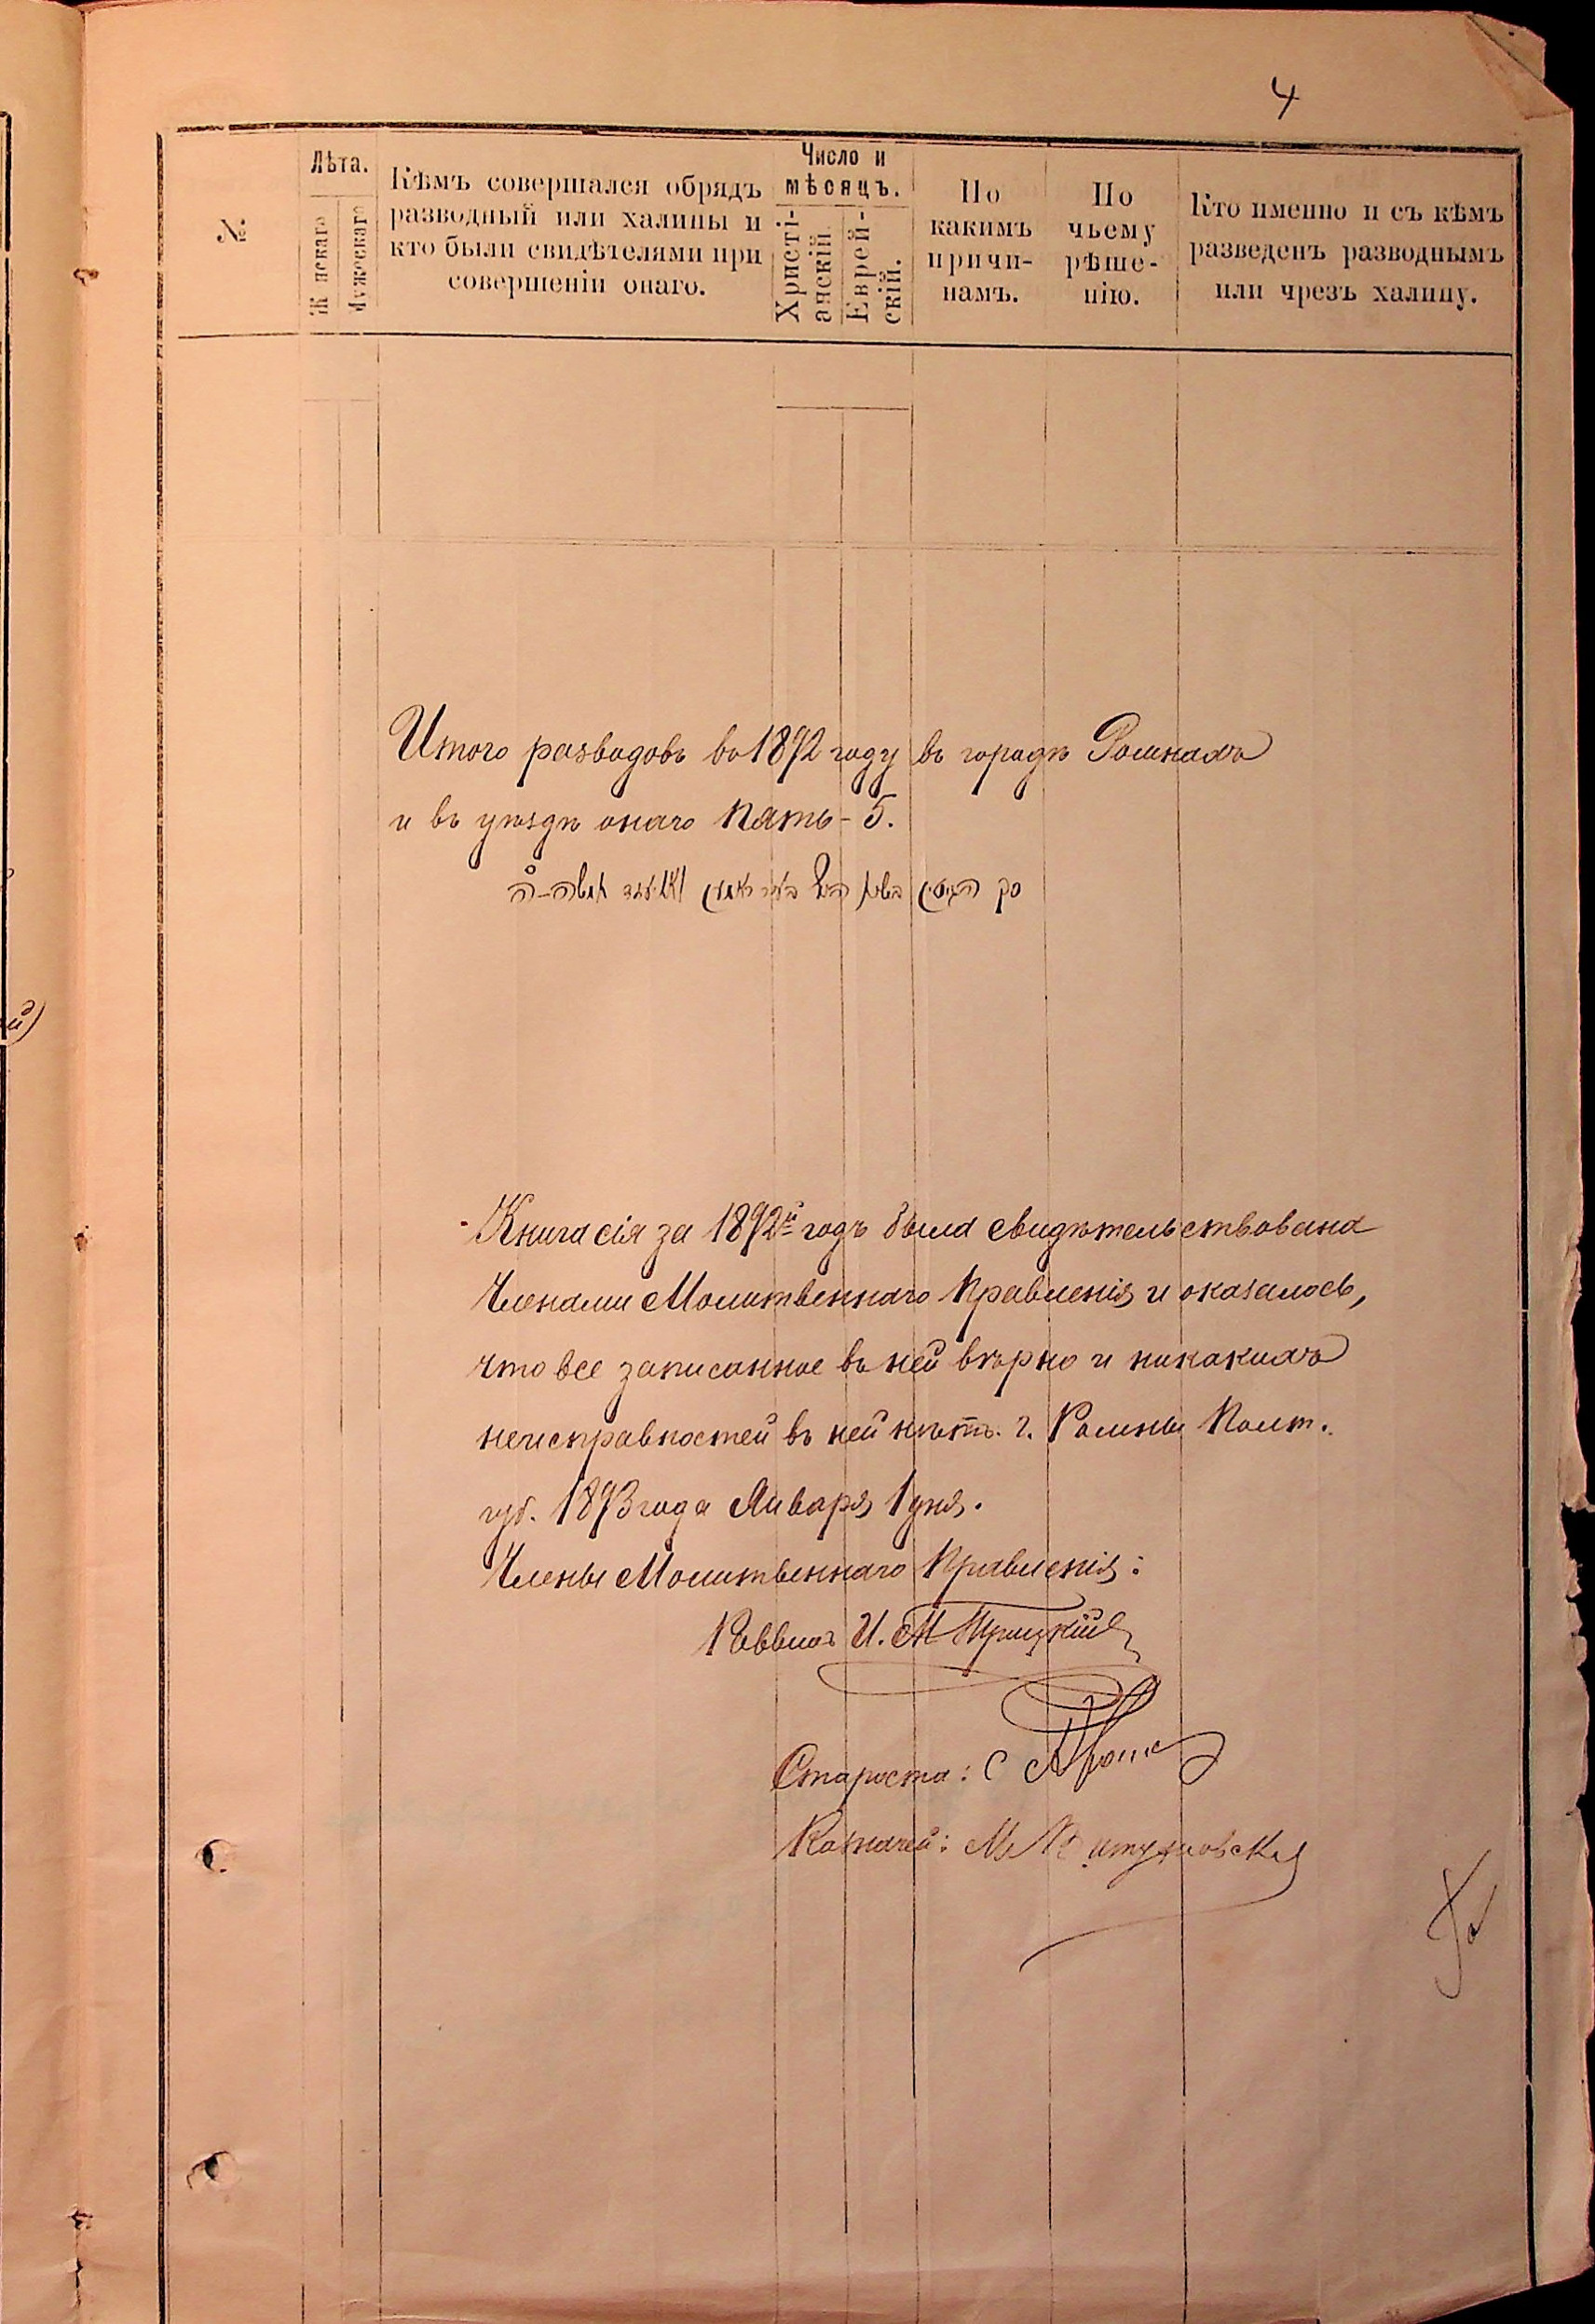 4
№
Лѣта.
Женскаго
Мужескаго
Кѣмъ совершался обрядъ
разводный или халицы и
кто были свидѣтелями при
совершеніи онаго.
Число и
мѣсяцъ.
Христі-
анскій.
Еврей-
скій.
По
какимъ
причи-
намъ.
По
чьему
рѣше-
нію.
Кто именно и съ кѣмъ
разведенъ разводнымъ
или чрезъ халицу.
Итого разводовъ въ 1892 году въ городѣ Ромнахъ
и въ уѣздѣ онаго пять - 5.
סך הגיטין בשנת
Книга сія за 1892й годъ была свидѣтельствована
Членами Молитвеннаго Правленія и оказалось,
что все записанное въ ней вѣрно и никакихъ
неисправностей въ ней нѣтъ. г. Ромны Полт.
губ. 1893 года Января 1 дня.
Члены Молитвеннаго Правленія:
Раввинъ И. М
Староста: С
Казначей: М